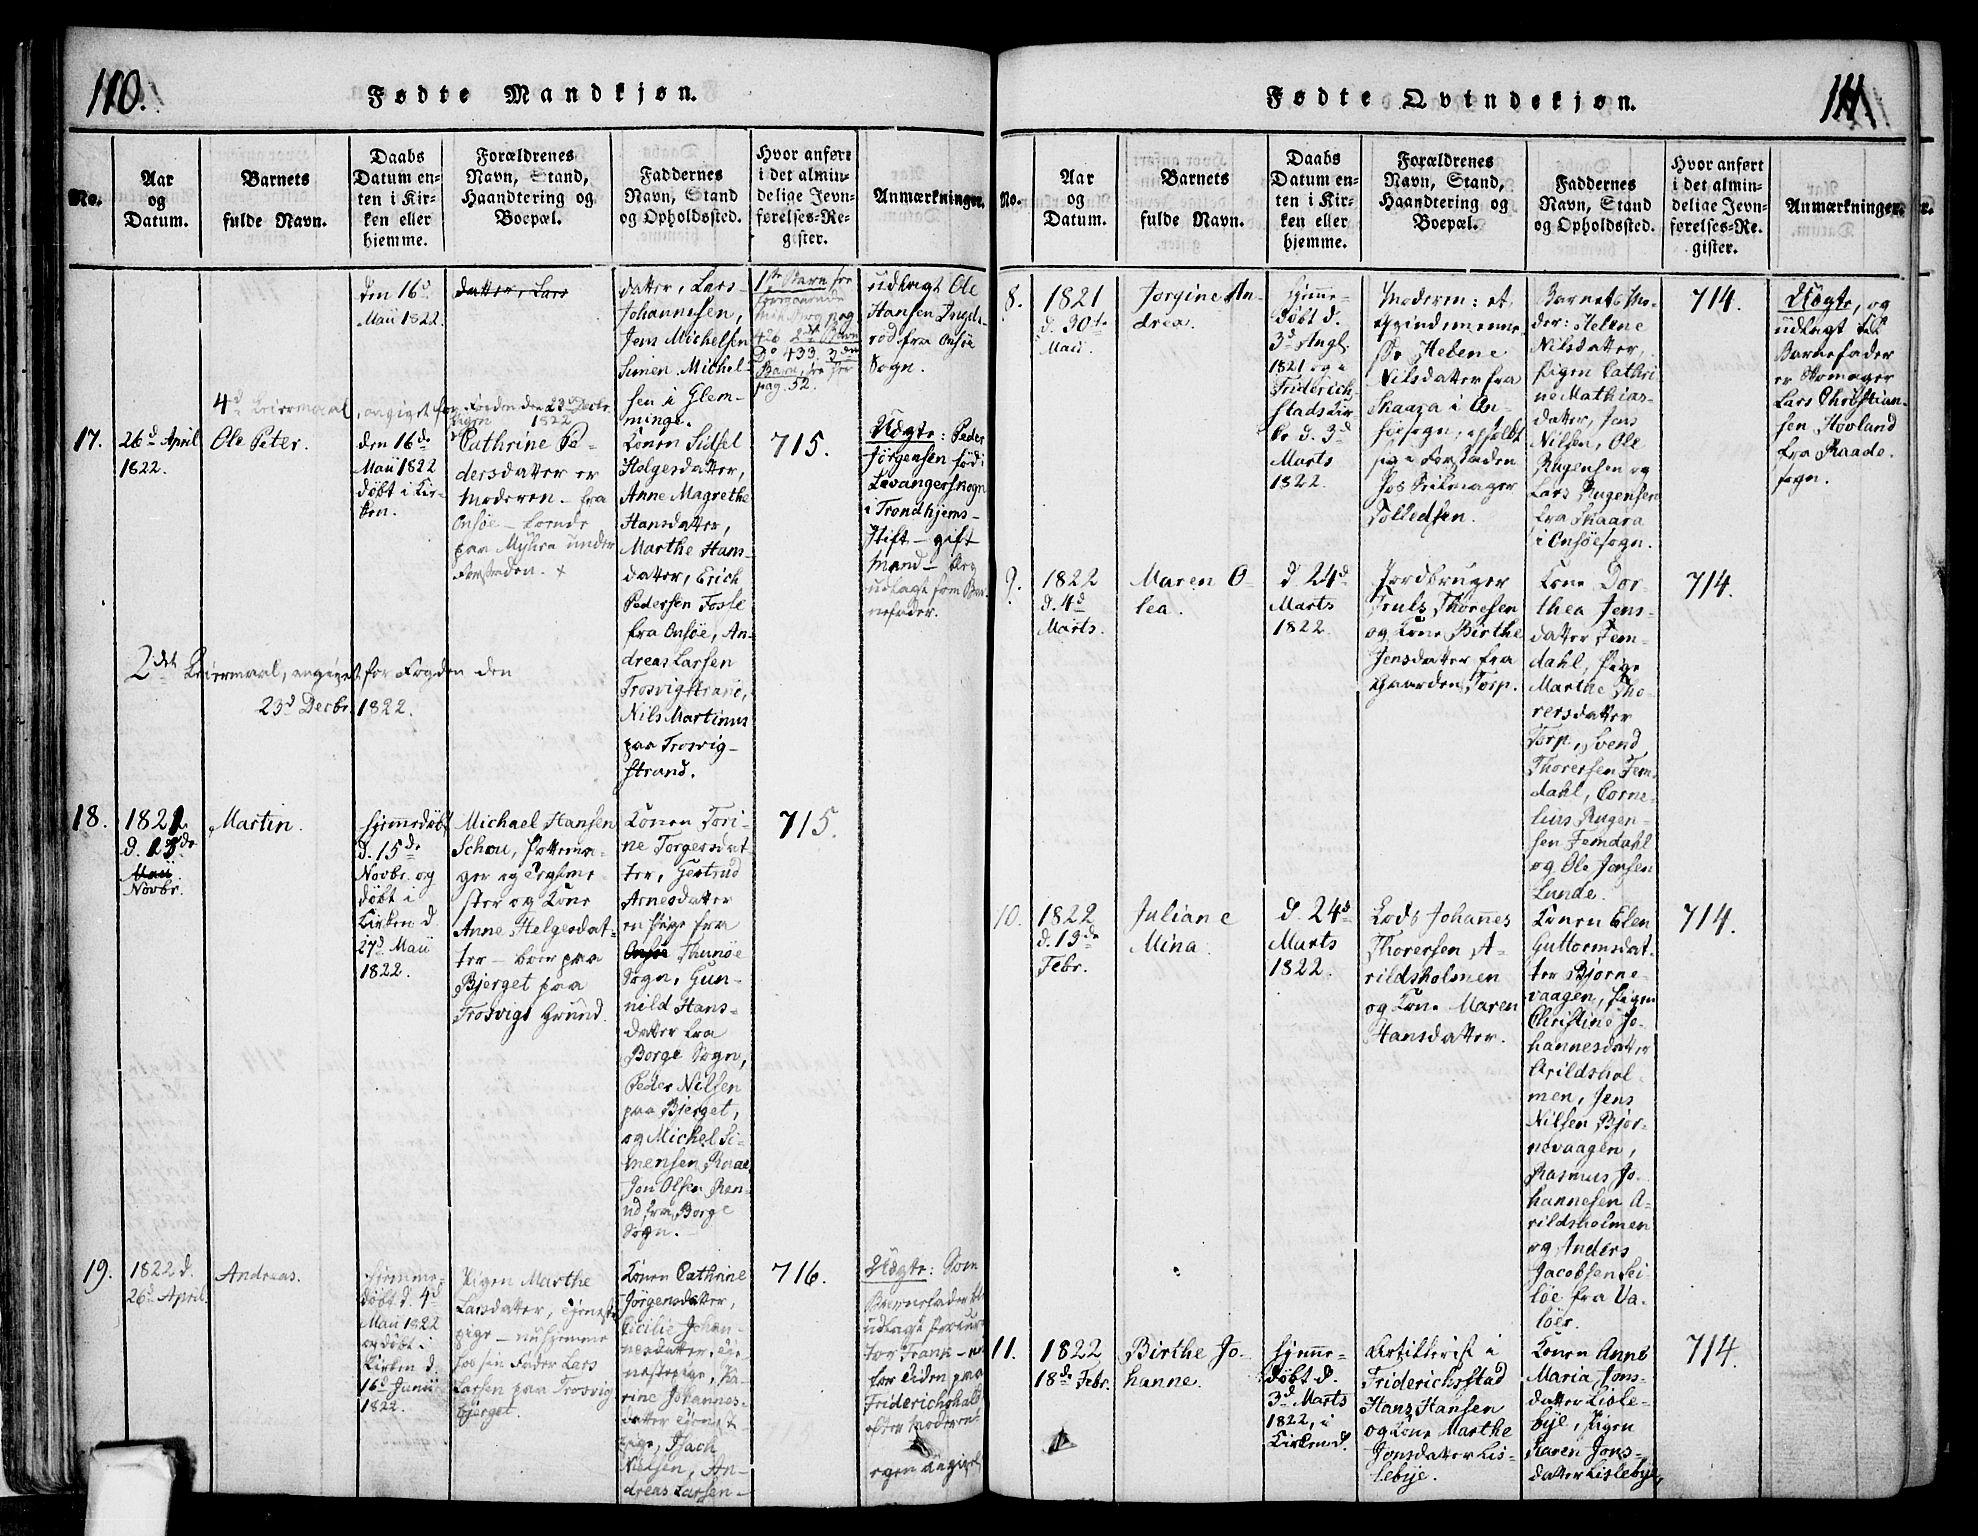 110.
Fødte Mandkjøn.
No.
Aar
og
Datum.
Barnets
fulde Navn.
Daabs
Datum en-
ten i Kir-
ken eller
hjemme.
Forældrenes
Navn, Stand,
Haandtering og
Boepæl.
Faddernes
Navn, Stand
og Opholdssted.
Hvor anført
i det almin-
delige Jevn-
førelses-Re-
gister.
Anmærkninger.
den 16d
Maii 1822.
datter, Lars
datter, Lars
Johannesen,
Jens Michelsen
Simen Michel-
sen i Glem-
minge.
1ste Barn see
pag
426 2det Barn
Do 433. 3die
Barn, see
pag. 52.
udlagt Ole
Hansen Ingels-
rød fra Onsøe
Sogn.
4d Leiermaal, angivet for Fogden den 23d Decbr.
1822
17.
26d April
1822.
Ole Peter.
den 16de
Maii 1822
døbt i Kir-
ken.
Pigen
Cathrine Pe-
dersdatter er
Moderen - fra
Onsøe -
paa Myhra under
Forstaden. +
Konen Sidsel
Holgersdatter,
Anne Magrethe
Hansdatter,
Marthe Hans-
datter, Erich
Pedersen Fosle
fra Onsøe, An-
dreas Larsen
Trosvigstrand,
Nils Martinus
paa Trosvig-
strand.
715.
Uægte: Peder
Jørgensen født i
Levangerskogn
i Trondhjems-
Stift - gift
Mand - er
udlagt som Bar-
nefader.
2det Leiermaal, angivet for Fogden den
23d Decbr. 1822.
18.
1821
d. 13de
Maii
Novbr.
Martin.
hjemmedøbt
d. 15de
Novbr. og
døbt i
Kirken d.
27d Maii
1822.
Michael Hansen
Schou, Pottema-
ger og Teglme-
ster og Kone
Anne Helgesdat-
ter - boer paa
Bjerget paa
Trosvigs Grund.
Konen Tori-
ne Torgersdat-
ter, Gertrud
Arnesdatter
en Pige fra
Onsøe Thunøe
Sogn, Gun-
nild Hans-
datter fra
Borge Sogn,
Peder Nilsen
paa Bjerget,
og Michel Si-
mensen,
Jon Olsen
fra Borge
Sogn.
715.
19.
1822 d.
26d April.
Andreas.
hjemme-
døbt d. 4d
Maii 1822
og døbt i
Kirken d.
16d Junii
1822.
Pigen Marthe
Larsdatter, tjeneste
pige - nu hjemme
hos sin Fader Lars
Larsen paa Trosvig
bjerget.
Konen Cathrine
Jørgensdatter,
Cicilie Johan-
nesdatter, tje-
nestepige, Ka-
rine Johannes-
datter tjeneste
pige, Isach
Nielsen, An-
dreas Larsen -
716.
Uægte: Som
Barnefader er
udlagt
Frank -
for tiden paa
Friderichshald
efter Moderen-
egen Angivel
111.
Fødte Qvindekjøn.
No.
Aar
og
Datum.
Barnets
fulde Navn.
Daabs
Datum en-
ten i Kir-
ken eller
hjemme.
Forældrenes
Navn, Stand,
Haandtering og
Boepæl.
Faddernes
Navn, Stand
og Opholdssted.
Hvor anført
i det almin-
delige Jevn-
førelses-Re-
gister.
Anmærkninger.
8.
1821
d. 30te
Maii.
Jorgine An-
drea.
hjemme-
døbt d.
3d Augt.
1821 og i
Friderich-
stads Kir-
ke d. 3d
Marts
1822.
Moderen: et
Qvindemenne-
ske Helene
Nilsdatter fra
Skaara i On-
søesogn, opholdt
sig i Forstaden
hos Feilmager
Tollevsen.
Barnets Mo-
der: Helene
Nilsdatter,
Pigen Cathri-
ne Mathias-
datter, Jens
Nilsen, Ole
Rugensen og
Lars Rugensen
fra Skaara
i Onsøesogn.
714.
Uægte, og
udlagt til
Barnefader
er Skomager
Lars Christian-
sen Hovland
fra Raade-
sogn.
9.
1822
d. 4d
Marts.
Maren O-
lea.
d. 24d
Marts
1822.
Jordbruger
Truls Thoresen
og Kone Birthe
Jensdatter fra
Gaarden Torp.
Kone Dor-
thea Jens-
datter Fem-
dahl, Pige
Marthe Tho-
rersdatter
Torp, Svend
Thoresen Fem-
dahl, Corne-
lius Rugen-
sen Femdahl
og Ole Jonsen
Lunde.
714.
10.
1822
d. 19de
Febr.
Juliane
Mina.
d. 24d
Marts
1822.
Lods Johannes
Thoresen A-
rildsholmen
og Kone Maren
Hansdatter.
Konen Elen
Guttormsdat-
ter Bjørne-
vaagen, Pigen
Christine Jo-
hannesdatter
Arildshol-
men, Jens
Nilsen Bjør-
nevaagen,
Rasmus Jo-
hannesen A-
rildsholmen
og Anders
Jacobsen Sei-
løe fra Va-
løer.
714.
11.
1822
18de Febr.
Birthe Jo-
hanne.
hjemme-
døbt d.
3d Marts
1822, i
Kirken d.
Artillerist i
Friderichsstad
Hans Hansen
og Kone Marthe
Jonsdatter Lis-
lebye.
Konen Anne
Maria Jons-
datter Lisle-
bye, Pigen
Karen Jons-
datter Lislebye,
714.